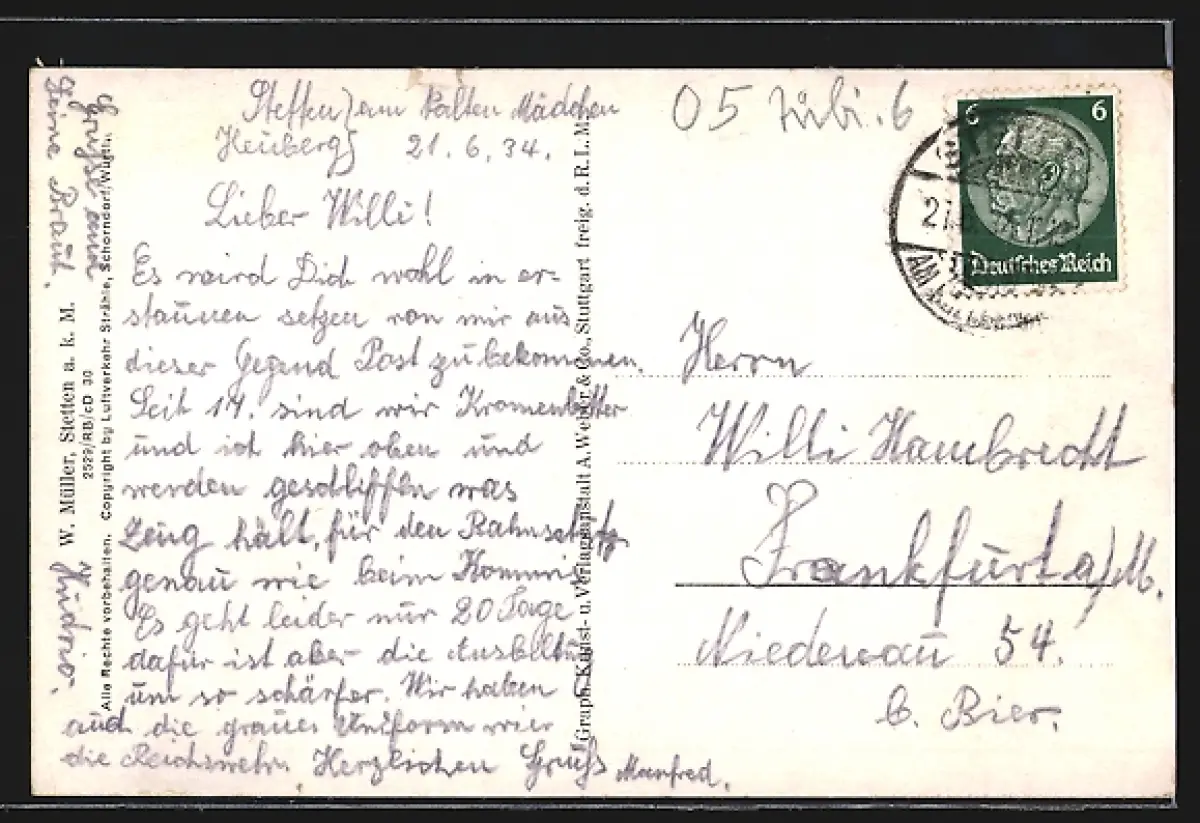 Stetten) am kalten Mädchen
Heuberg) 21. 6. 34.
Lieber Willi!
Es wird Dich wohl in er-
staunen setzen von mir aus
dieser Gegend Post zu bekommen.
Seit 14. sind wir
und ich hier oben und
werden geschliffen was
Zeug hält, für den
genau wie beim Kommis
Es geht leider nur 20 Tage
dafür ist aber die
um so schärfer. Wir haben
auch die graue Uniform wier
die Reichswehr. Herzlichen Gruß Manfred.
Grüße und
Deine Braut.
W. Müller, Stetten a. k. M.
2529/RB/cD 30
Alle Rechte vorbehalten. Copyright by Luftverkehr Strähle, Schorndorf/Württ.
Graph. Kunst- u. Verlagsanstalt A. Weber & Co., Stuttgart freig. d. R. L. M.
05
6 6
Deutsches Reich
21
AM
Herrn
Willi Hambrecht
Frankfurt a/M.
Niedenau 54.
b. Bier.